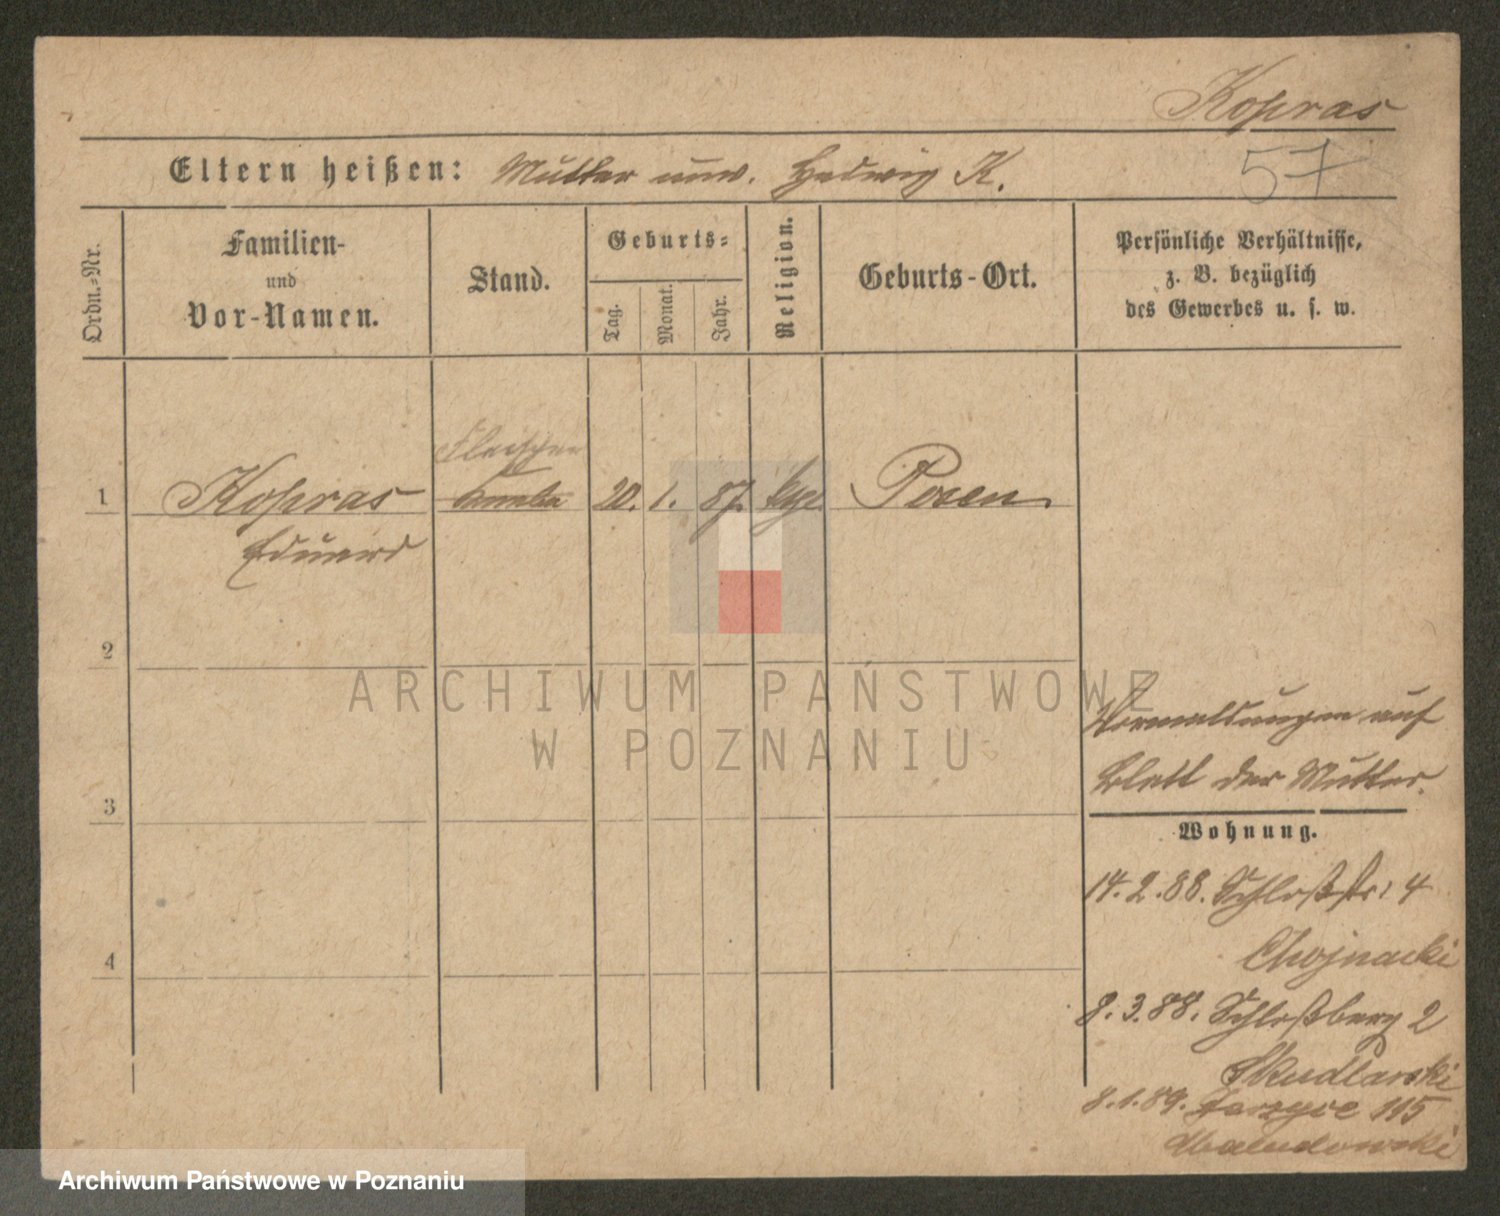 Kopras
57
Eltern heißen: Mutter unv. Hedwig K.
Ordn.-Nr.
Familien-
und
Vor-Namen.
Stand.
Geburts-
Tag.
Monat.
Jahr.
Religion.
Geburts-Ort.
Persönliche Verhältnisse,
z. B. bezüglich
des Gewerbes u. s. w.
Fleischer
1 Kopras 20. 1. 87. Posen
Eduard
2
3
4
ARCHIWUM PAŃSTWOWE
W POZNANIU
Vormeldungen auf
Blatt der Mutter.
Wohnung.
14.2.88. Schloßstr. 4
Chojnacki
8.3.88. Schloßberg 2
Skudlarski
8.1.89. Jerzyce 115
Archiwum Państwowe w Poznaniu